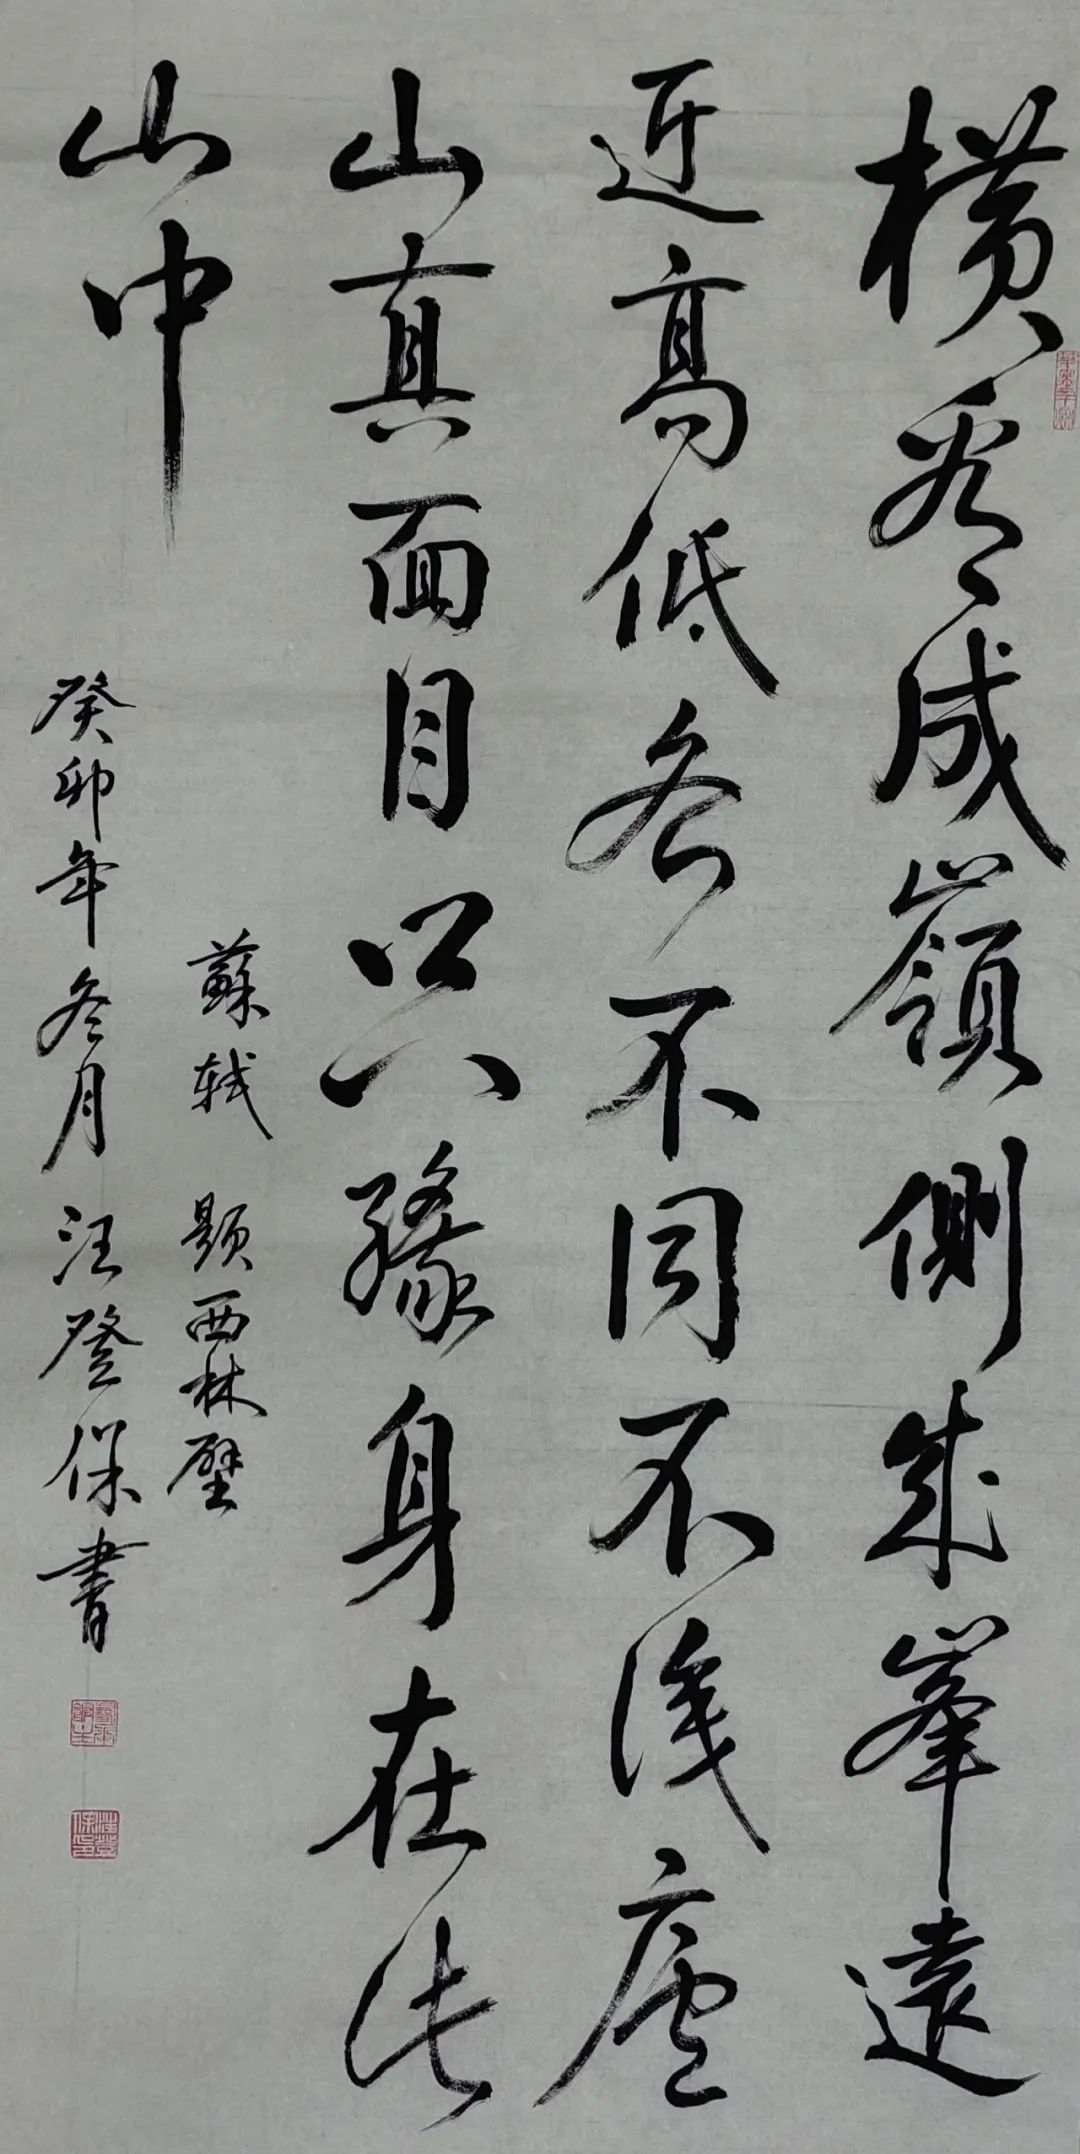 橫看成嶺側成峯遠
近高低各不同不識廬
山真面目只緣身在此
山中
蘇軾 題西林壁
癸卯年冬月汪登保書
汪登保印